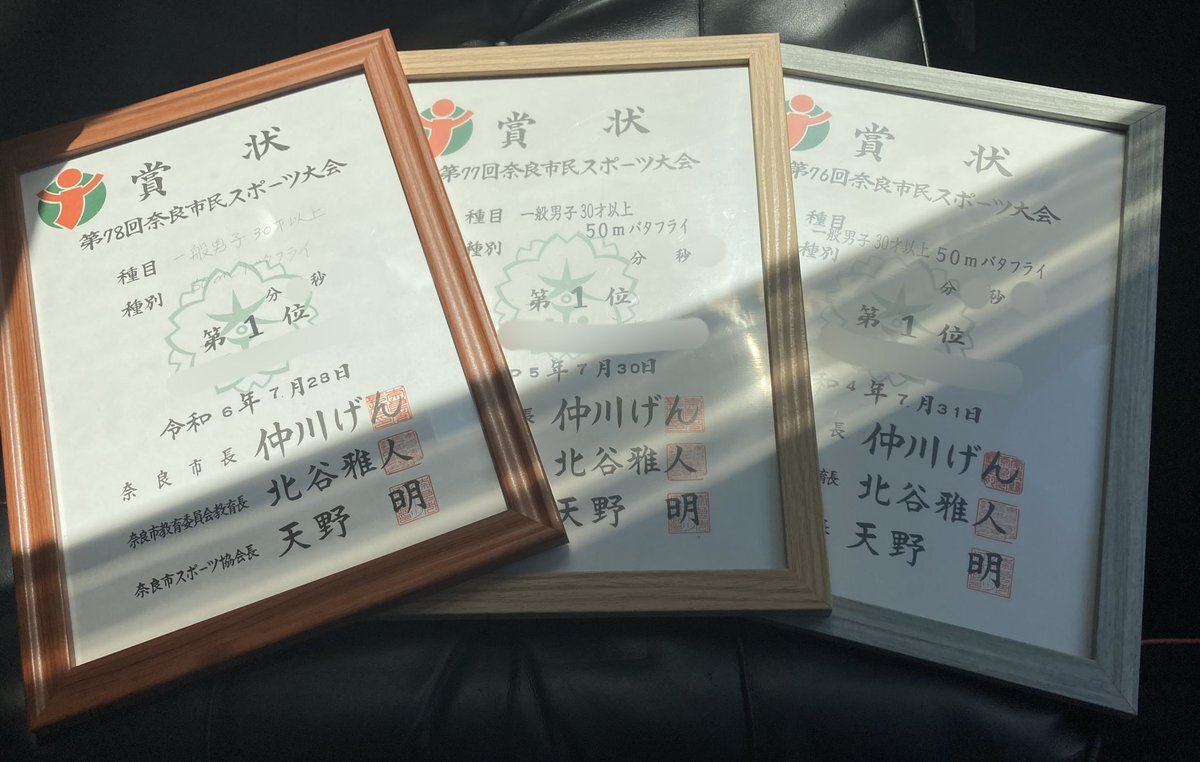 賞 状
第78回奈良市民スポーツ大会
種目 一般男子 30才以上
種別 バタフライ
分 秒
第 1 位
令和 6年 7月28日
奈良市長 仲川げん
奈良市教育委員会教育長 北谷雅人
奈良市スポーツ協会長 天野 明
賞 状
第77回奈良市民スポーツ大会
種目 一般男子 30才以上
種別 50mバタフライ
分 秒
第 1 位
5年 7月30日
長 仲川げん
北谷雅人
天野 明
賞 状
第76回奈良市民スポーツ大会
種目
種別 一般男子 30才以上 50mバタフライ
分 秒
第 1 位
4年 7月31日
長 仲川げん
育長 北谷雅人
天野 明